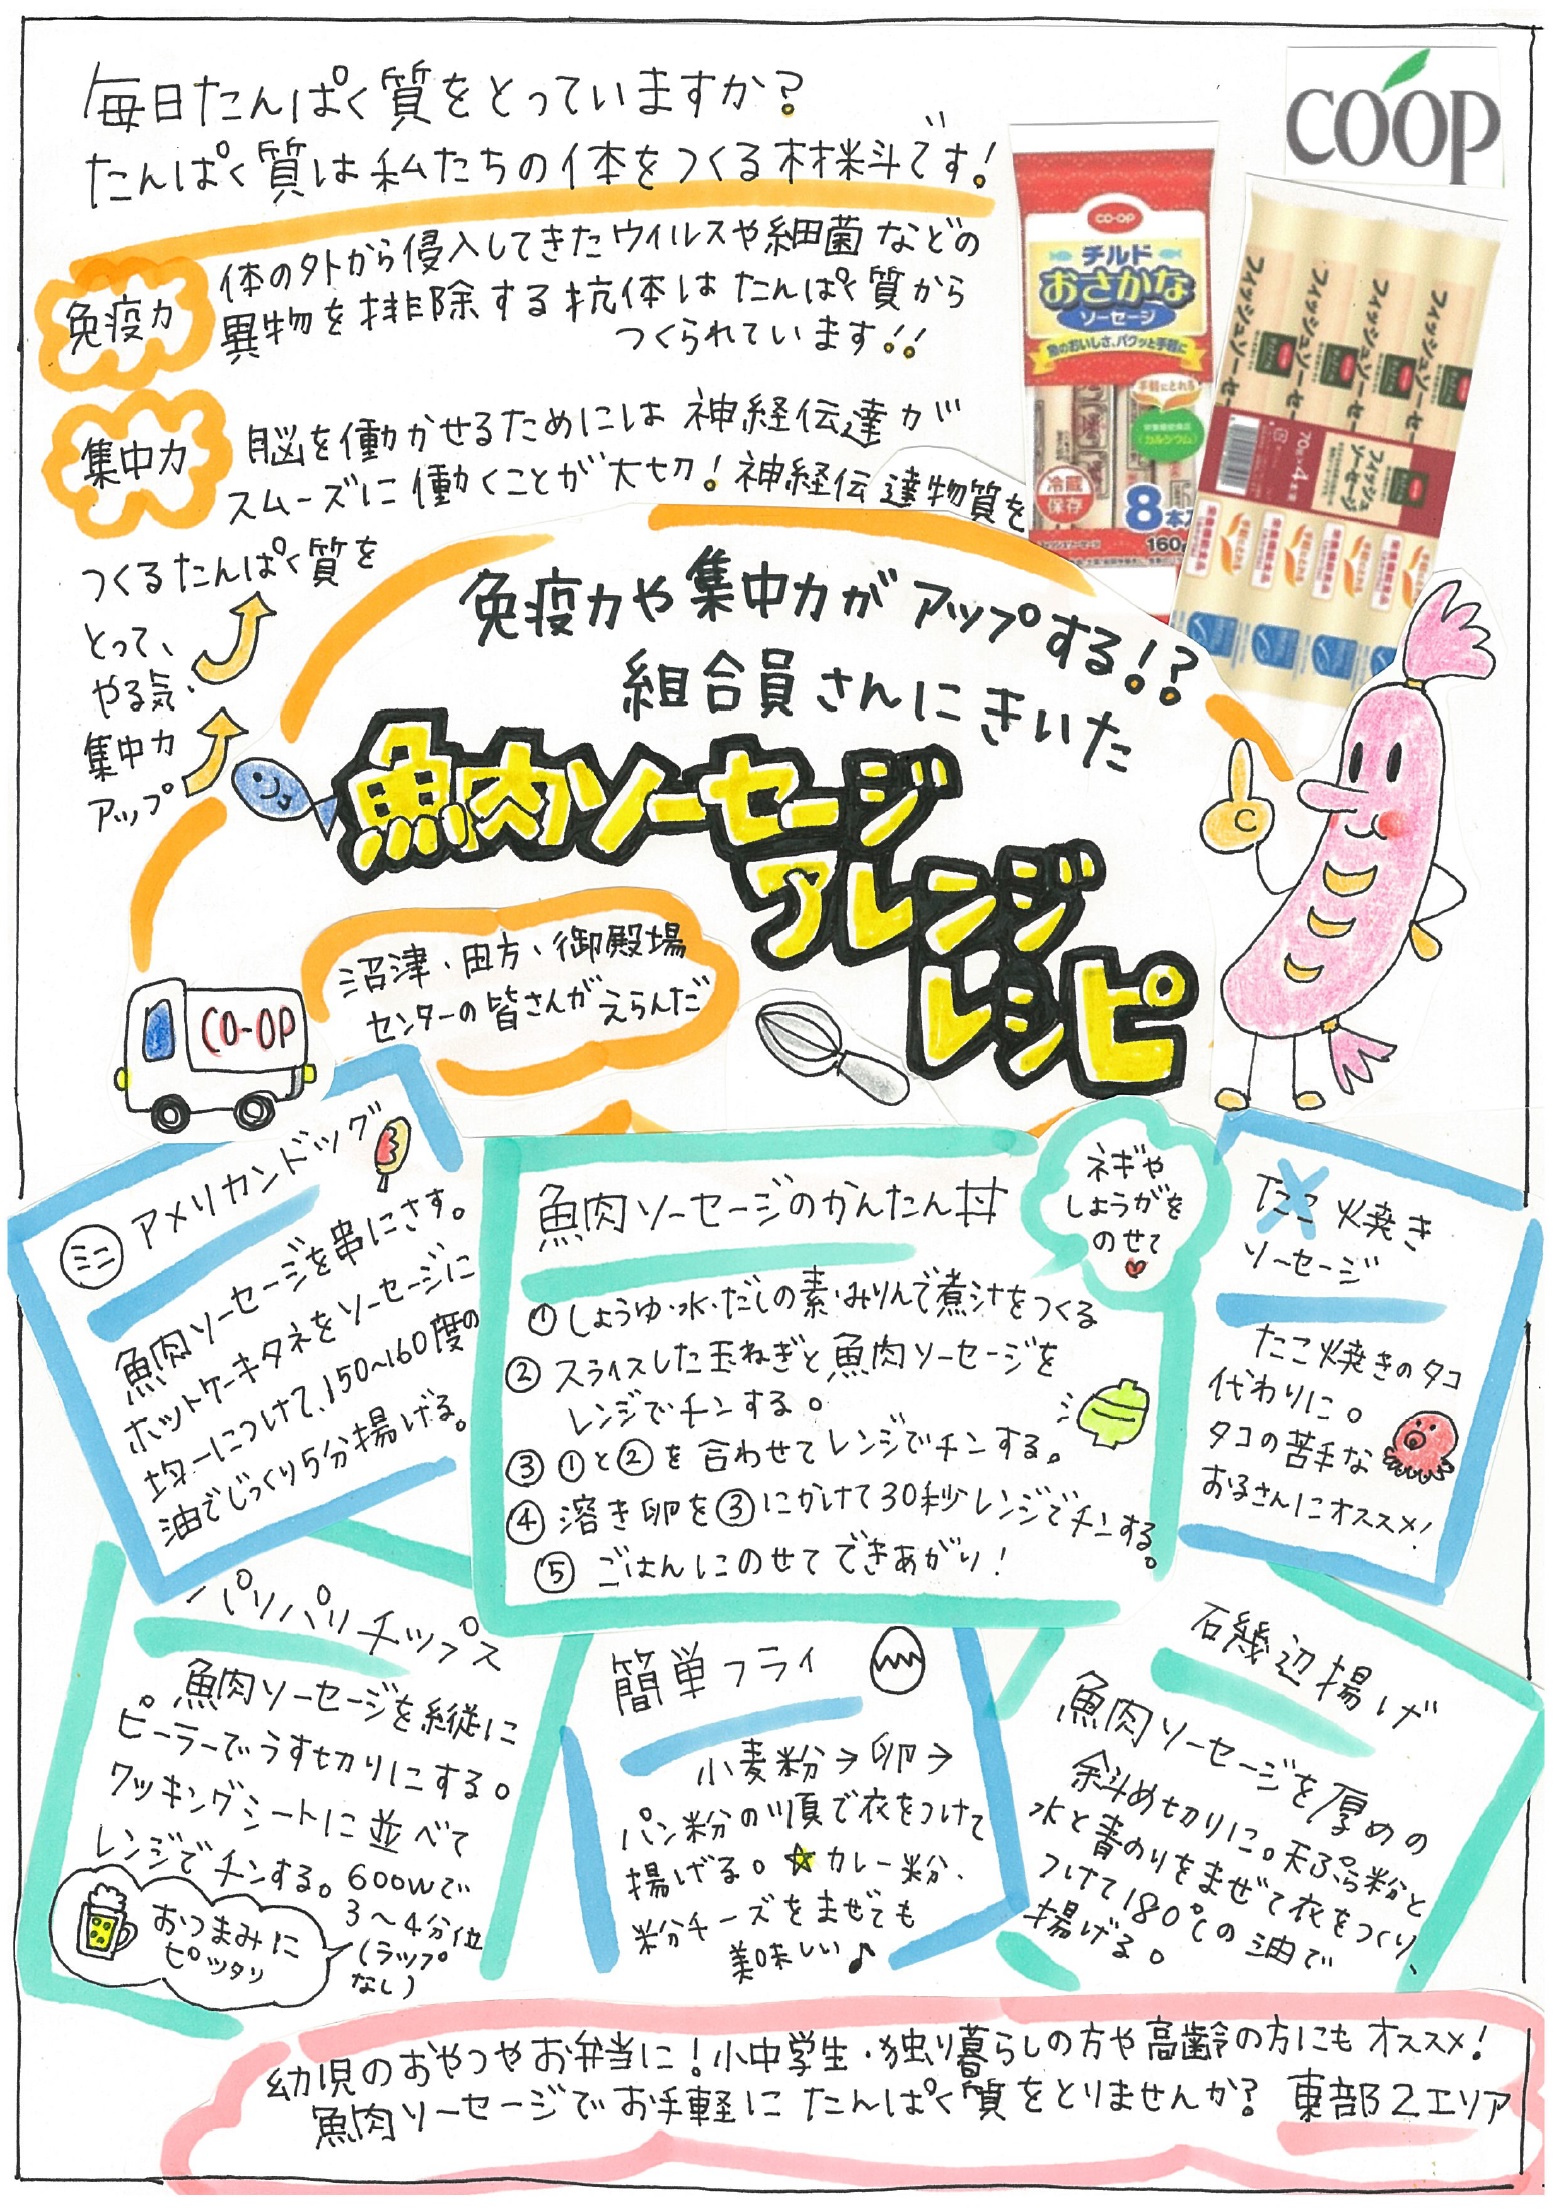 毎日たんぱく質をとっていますか?
たんぱく質は私たちの体をつくる材料です!
COOP
免疫力
体の外から侵入してきたウイルスや細菌などの
異物を排除する抗体はたんぱく質から
つくられています!!
集中力
脳を働かせるためには神経伝達が
スムーズに働くことが大切!神経伝達物質を
つくるたんぱく質を
とって、
やる気・
集中力
アップ
CO-OP
チルド
おさかな
ソーセージ
魚のおいしさ、パクッと手軽に
手軽にとれる
カルシウム
冷蔵
保存
8本入
160g
フィッシュソーセー
フィッシュソーセー
フィッシュソーセー
フィッシュソーセー
フィッシュ
ソーセージ
70g×4本束
免疫力や集中力がアップする!?
組合員さんにきいた
魚肉ソーセージ
アレンジ
レシピ
沼津・田方・御殿場
センターの皆さんがえらんだ
CO-OP
ミニアメリカンドッグ
魚肉ソーセージを串にさす。
ホットケーキタネをソーセージに
均一につけて、150~160度の
油でじっくり5分揚げる。
魚肉ソーセージのかんたん丼
ネギや
しょうがを
のせて
①しょうゆ・水・だしの素・みりんで煮汁をつくる
②スライスした玉ねぎと魚肉ソーセージを
レンジでチンする。
③①と②を合わせてレンジでチンする。
④溶き卵を③にかけて30秒レンジでチンする。
⑤ごはんにのせてできあがり!
たこ焼き
ソーセージ
たこ焼きのタコ
代わりに。
タコの苦手な
お子さんにオススメ!
パリパリチップス
魚肉ソーセージを縦に
ピーラーでうす切りにする。
クッキングシートに並べて
レンジでチンする。600Wで
3~4分位
(ラップ
なし)
おつまみに
ピッタリ
簡単フライ
小麦粉→卵→
パン粉の順で衣をつけて
揚げる。☆カレー粉、
粉チーズをまぜても
美味しい♪
石磯辺揚げ
魚肉ソーセージを厚めの
斜め切りに。天ぷら粉と
水と青のりをまぜて衣をつくり、
つけて180℃の油で
揚げる。
幼児のおやつやお弁当に!小中学生・独り暮らしの方や高齢の方にもオススメ!
魚肉ソーセージでお手軽にたんぱく質をとりませんか? 東部2エリア